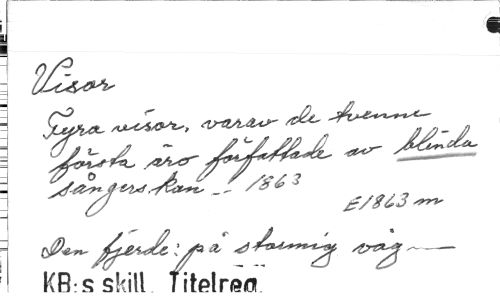 Visor
Fyra visor, varav de tvenne
första äro författade av blinda
sångerskan -- 1863
E1863 m
Den fjerde: på stormig våg —
KB:s skill. Titelreg.